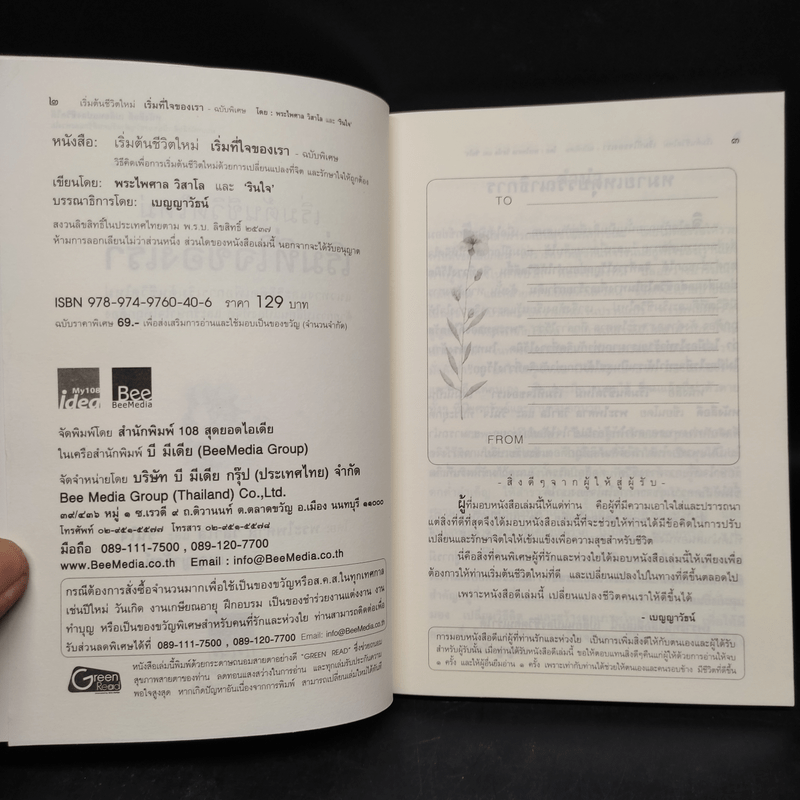 ๒ เริ่มต้นชีวิตใหม่ เริ่มที่ใจของเรา - ฉบับพิเศษ โดย : พระไพศาล วิสาโล และ 'รินใจ'
หนังสือ: เริ่มต้นชีวิตใหม่ เริ่มที่ใจของเรา - ฉบับพิเศษ
วิธีคิดเพื่อการเริ่มต้นชีวิตใหม่ด้วยการเปลี่ยนแปลงที่จิต และรักษาใจให้ถูกต้อง
เขียนโดย: พระไพศาล วิสาโล และ 'รินใจ'
บรรณาธิการโดย: เบญญาวัธน์
สงวนลิขสิทธิ์ในประเทศไทยตาม พ.ร.บ. ลิขสิทธิ์ ๒๕๓๗
ห้ามการลอกเลียนไม่ว่าส่วนหนึ่ง ส่วนใดของหนังสือเล่มนี้ นอกจากจะได้รับอนุญาต
ISBN 978-974-9760-40-6 ราคา 129 บาท
ฉบับราคาพิเศษ 69.- เพื่อส่งเสริมการอ่านและใช้มอบเป็นของขวัญ (จำนวนจำกัด)
My108 idea
Bee BeeMedia
จัดพิมพ์โดย สำนักพิมพ์ 108 สุดยอดไอเดีย
ในเครือสำนักพิมพ์ บี มีเดีย (BeeMedia Group)
จัดจำหน่ายโดย บริษัท บี มีเดีย กรุ๊ป (ประเทศไทย) จำกัด
Bee Media Group (Thailand) Co.,Ltd.
๓๙/๔๓๖ หมู่ ๑ ซ.เรวดี ๙ ถ.ติวานนท์ ต.ตลาดขวัญ อ.เมือง นนทบุรี ๑๑๐๐๐
โทรศัพท์ ๐๒-๙๕๑-๕๕๗๗ โทรสาร ๐๒-๙๕๑-๕๕๗๘
มือถือ 089-111-7500 , 089-120-7700
www.BeeMedia.co.th Email : info@BeeMedia.co.th
กรณีต้องการสั่งซื้อจำนวนมากเพื่อใช้เป็นของขวัญหรือส.ค.ส.ในทุกเทศกาล
เช่นปีใหม่ วันเกิด งานเกษียณอายุ ฝึกอบรม เป็นของชำร่วยงานแต่งงาน งาน
ทำบุญ หรือเป็นของขวัญพิเศษสำหรับคนที่รักและห่วงใย ท่านสามารถติดต่อเพื่อ
รับส่วนลดพิเศษได้ที่ 089-111-7500 , 089-120-7700 Email: info@BeeMedia.co.th
Green Read
หนังสือเล่มนี้พิมพ์ด้วยกระดาษถนอมสายตาอย่างดี "GREEN READ" ซึ่งช่วยถนอม
สุขภาพสายตาของท่าน ลดทอนแสงสว่างในการอ่าน และทุกเล่มรับประกันความ
พอใจสูงสุด หากเกิดปัญหาอันเนื่องจากการพิมพ์ สามารถเปลี่ยนเล่มใหม่ได้ทันที
๓
TO
FROM
- สิ่งดีๆจากผู้ให้สู่ผู้รับ -
ผู้ที่มอบหนังสือเล่มนี้ให้แด่ท่าน คือผู้ที่มีความเอาใจใส่และปรารถนา
แต่สิ่งที่ดีที่สุดจึงได้มอบหนังสือเล่มนี้ที่จะช่วยให้ท่านได้มีข้อคิดในการปรับ
เปลี่ยนและรักษาจิตใจให้เข้มแข็งเพื่อความสุขสำหรับชีวิต
นี่คือสิ่งที่คนพิเศษผู้ที่รักและห่วงใยได้มอบหนังสือเล่มนี้ให้เพียงเพื่อ
ต้องการให้ท่านเริ่มต้นชีวิตใหม่ที่ดี และเปลี่ยนแปลงไปในทางที่ดีขึ้นตลอดไป
เพราะหนังสือดีเล่มนี้ เปลี่ยนแปลงชีวิตคนเราให้ดีขึ้นได้
- เบญญาวัธน์
การมอบหนังสือดีแก่ผู้ที่ท่านรักและห่วงใย เป็นการเพิ่มสิ่งดีให้กับตนเองและผู้ได้รับ
สำหรับผู้รับนั้น เมื่อท่านได้รับหนังสือดีเล่มนี้ ขอให้ตอบแทนสิ่งดีๆคืนแก่ผู้ให้ด้วยการอ่านให้จบ
๑ ครั้ง และให้ผู้อื่นยืมอ่าน ๑ ครั้ง เพราะเท่ากับท่านได้ช่วยให้ตนเองและคนรอบข้าง มีชีวิตที่ดีขึ้น